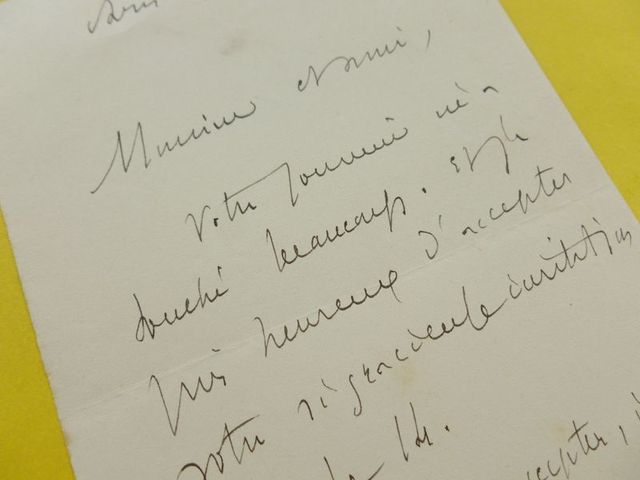 Monsieur et ami,
Votre souvenir m'a
touché beaucoup. Et je
suis heureux d'accepter
votre si gracieuse invitation
14.
accepter,